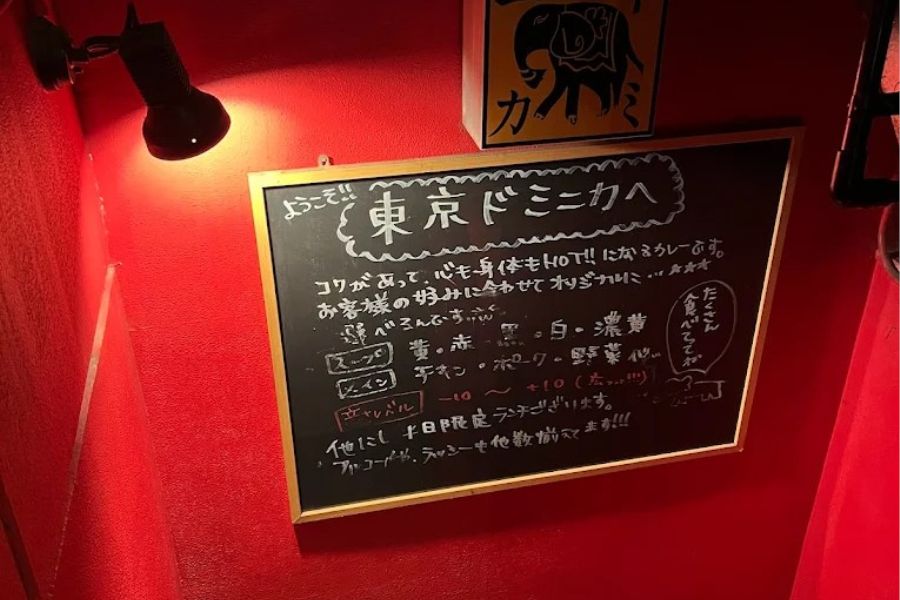 カ
ミ
ようこそ!!
東京ドミニカへ
コクがあって、心も身体もHOT!!になるカレーです。
お客様の好みに合わせてオリジナルに…★★★
選べるんですっ
スープ 黄・赤・黒・白・濃黄
メイン チキン・ポーク・野菜 他…
辛さレベル -10 〜 +10
他にも平日限定ランチございます。
アルコールや、ラッシーも他数揃えてます!!!
たくさん
食べてってネ